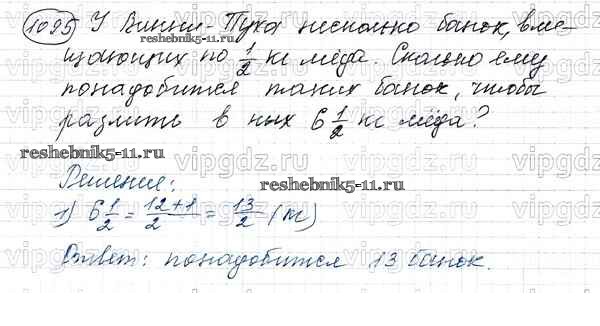 1095 У Винни-Пуха несколько банок, вме-
щающих по 1/2 кг мёда. Сколько ему
понадобится таких банок, чтобы
разлить в них 6 1/2 кг мёда?
reshebnik5-11.ru
reshebnik5-11.ru
Решение:
1) 6 1/2 = 12+1/2 = 13/2 (м)
Ответ: понадобится 13 банок.
vipgdz.ru